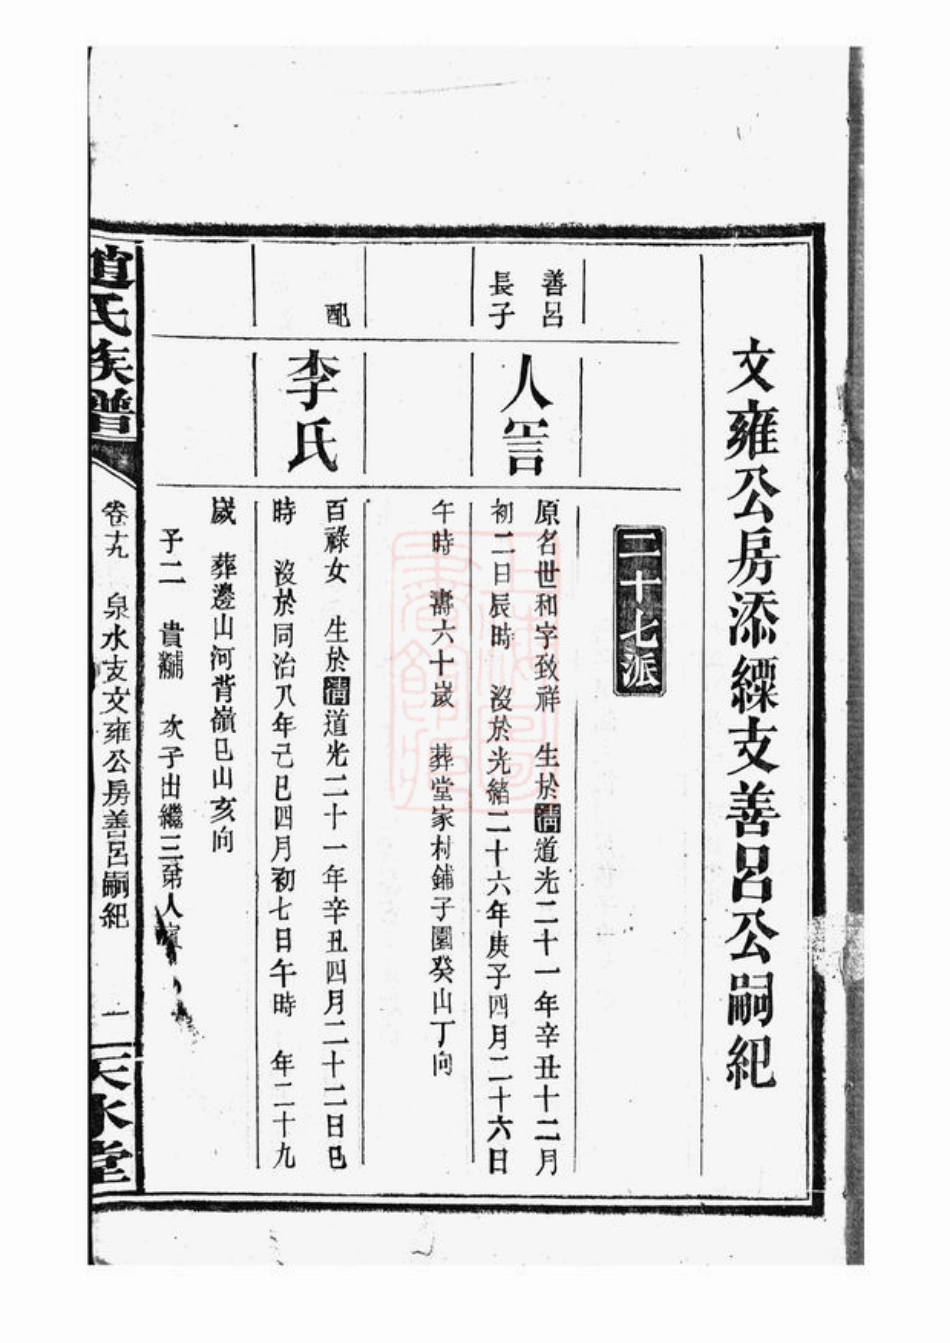 文雍公房添繰支善呂公嗣紀
二十七派
善呂
長子
人詈
原名世和字致祥 生於清道光二十一年辛丑十二月
初二日辰時 沒於光緒二十六年庚子四月二十六日
午時 壽六十歲 葬堂家村鋪子園癸山丁向
配
李氏
百祿女 生於清道光二十一年辛丑四月二十二日巳
時 沒於同治八年己巳四月初七日午時 年二十九
歲 葬邊山河背嶺巳山亥向
子二 貴黼 次子出繼三弟人
趙氏族譜
卷十九 泉水支文雍公房善呂嗣紀 一
天水堂